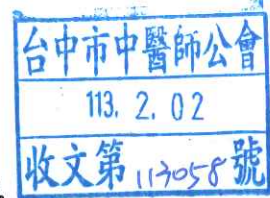 台中市中醫師公會
113. 2. 02
收文第113058號